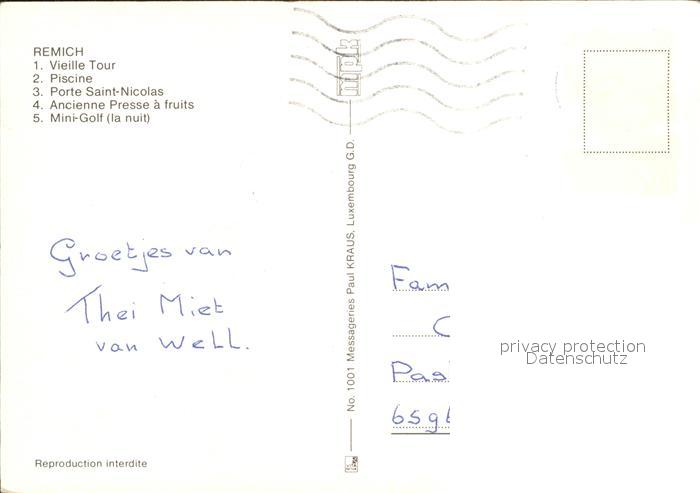 REMICH
1. Vieille Tour
2. Piscine
3. Porte Saint-Nicolas
4. Ancienne Presse à fruits
5. Mini-Golf (la nuit)
Groetjes van
Thei Miet
van Well.
Reproduction interdite
mpk
No. 1001 Messageries Paul KRAUS, Luxembourg G.D.
Fam
privacy protection
Datenschutz